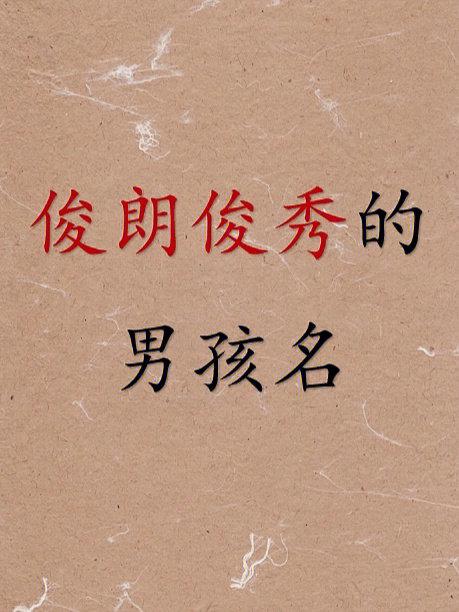 俊朗俊秀的
男孩名